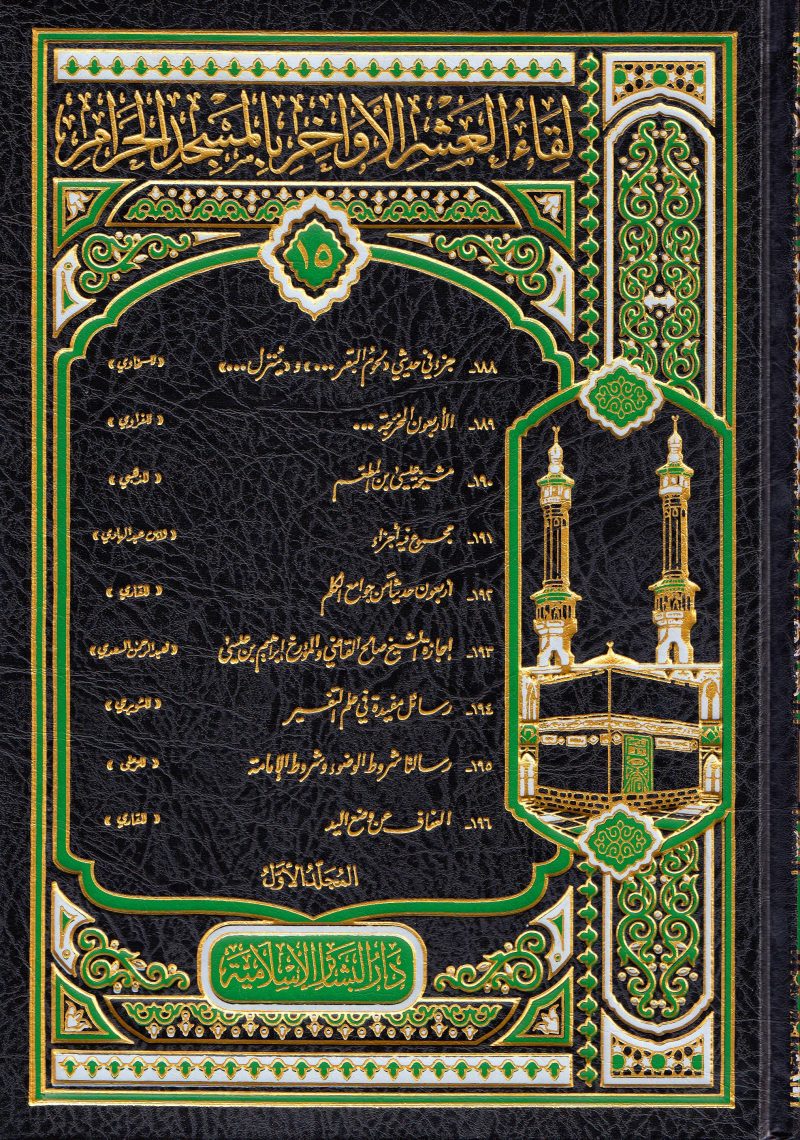 لِقَاءُ العَشْرِ الأَوَاخِرِ بِالْمَسْجِدِ الْحَرَامِ
١٥
١٨٨ـ جزء في حديثي «لحوم البقر ...» و«يُنزل ...» «للسخاوي»
١٨٩ـ الأربعون المخرجة ... «للفزاوي»
١٩٠ـ مشيخة عيسى بن المطعم «للذهبي»
١٩١ـ مجموع فيه أجزاء «لابن عبد الهادي»
١٩٢ـ أربعون حديثاً من جوامع الكلم «للقاري»
١٩٣ـ إجازة الشيخ صالح القاضي والمؤرخ إبراهيم بن عيسى «لعبد الرحمن السعدي»
١٩٤ـ رسائل مفيدة في علم التفسير «للنويري»
١٩٥ـ رسالتا شروط الوضوء وشروط الإمامة «للرملي»
١٩٦ـ الشفاف عن وضع اليد «للقاري»
المُجَلَّدُ الأَوَّلُ
دَارُ البَشَائِرِ الإِسْلَامِيَّة